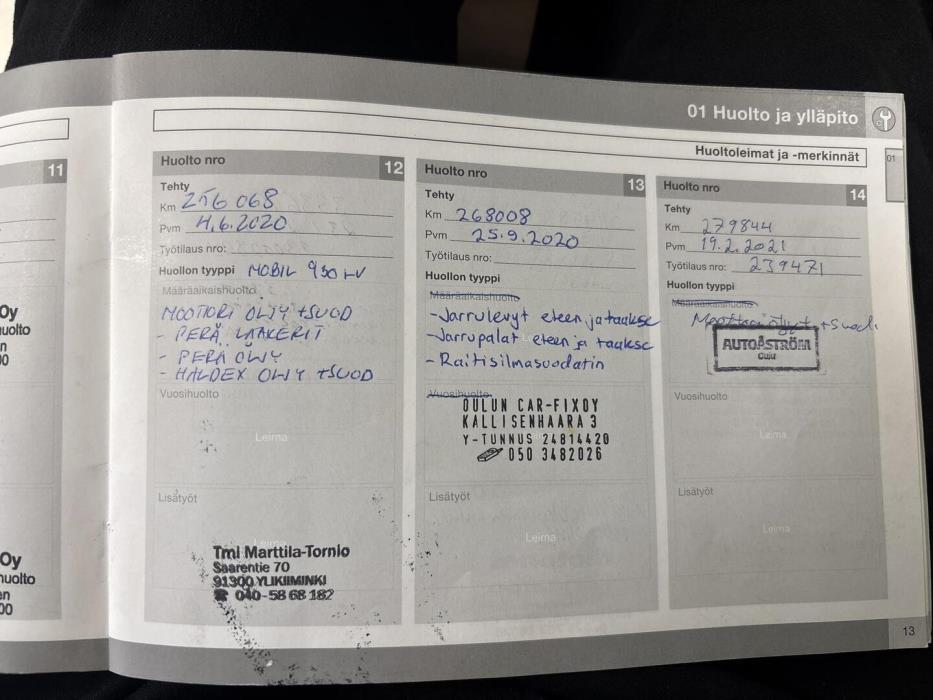 01 Huolto ja ylläpito
Huoltoleimat ja -merkinnät
01
11
Oy
uolto
n
00
Oy
huolto
en
00
Huolto nro 12
Tehty
Km 256 068
Pvm 4.6.2020
Työtilaus nro:
Huollon tyyppi MOBIL
Määräaikaishuolto
MOOTTORI ÖLJY +SUOD
- PERÄ LAAKERIT
- PERÄ ÖLJY
- HALDEX ÖLJY +SUOD
Vuosihuolto
Leima
Lisätyöt
Leima
Tmi Marttila-Tornio
Saarentie 70
91300 YLIKIIMINKI
☎ 040-58 68 182
Huolto nro 13
Tehty
Km 268008
Pvm 25.9.2020
Työtilaus nro:
Huollon tyyppi
Määräaikaishuolto
- Jarrulevyt eteen ja taakse
- Jarrupalat eteen ja taakse
- Raitisilmasuodatin
Vuosihuolto
OULUN CAR-FIXOY
KALLISENHAARA 3
Y-TUNNUS 24814420
050 3482026
Lisätyöt
Leima
Huolto nro 14
Tehty
Km 279844
Pvm 19.2.2021
Työtilaus nro: 239471
Huollon tyyppi
Määräaikaishuolto
Moottori öljyt + Suod.
AUTOÅSTRÖM
Oulu
Vuosihuolto
Leima
Lisätyöt
Leima
13